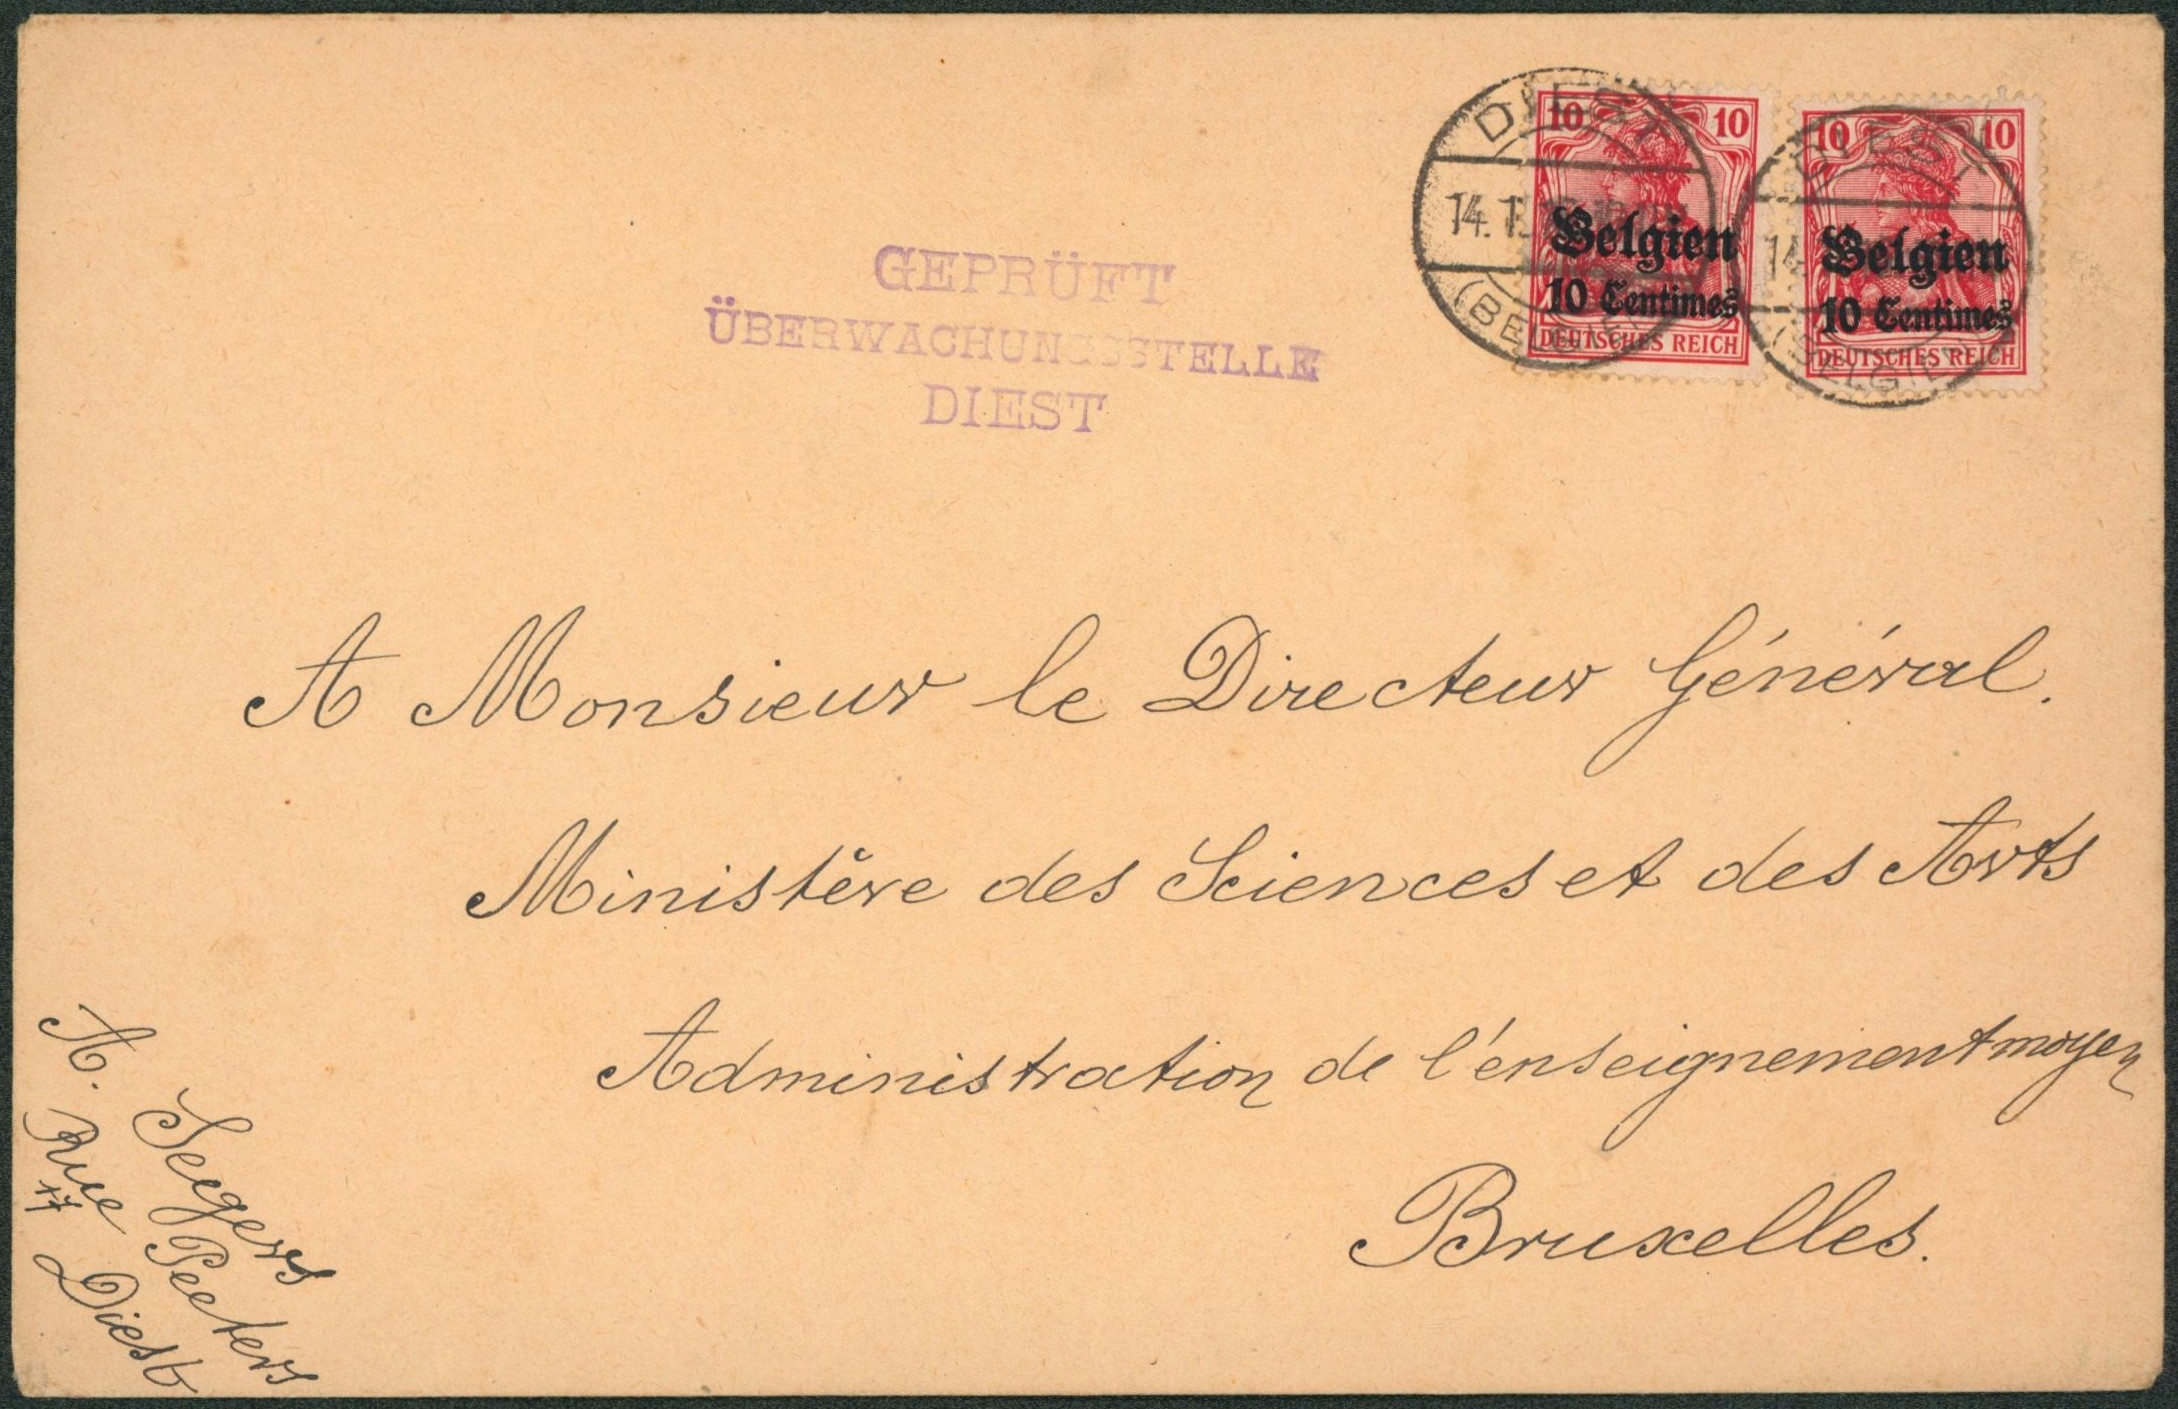 GEPRÜFT
ÜBERWACHUNGSSTELLE
DIEST
DIEST
14.
(BELGIEN)
10 10
Belgien
10 Centimes
DEUTSCHES REICH
DIEST
14
(BELGIEN)
10 10
Belgien
10 Centimes
DEUTSCHES REICH
A Monsieur le Directeur Général.
Ministère des Sciences et des Arts
Administration de l'enseignement moyen
Bruxelles.
A. Segers
Rue Peeters
17 Diest